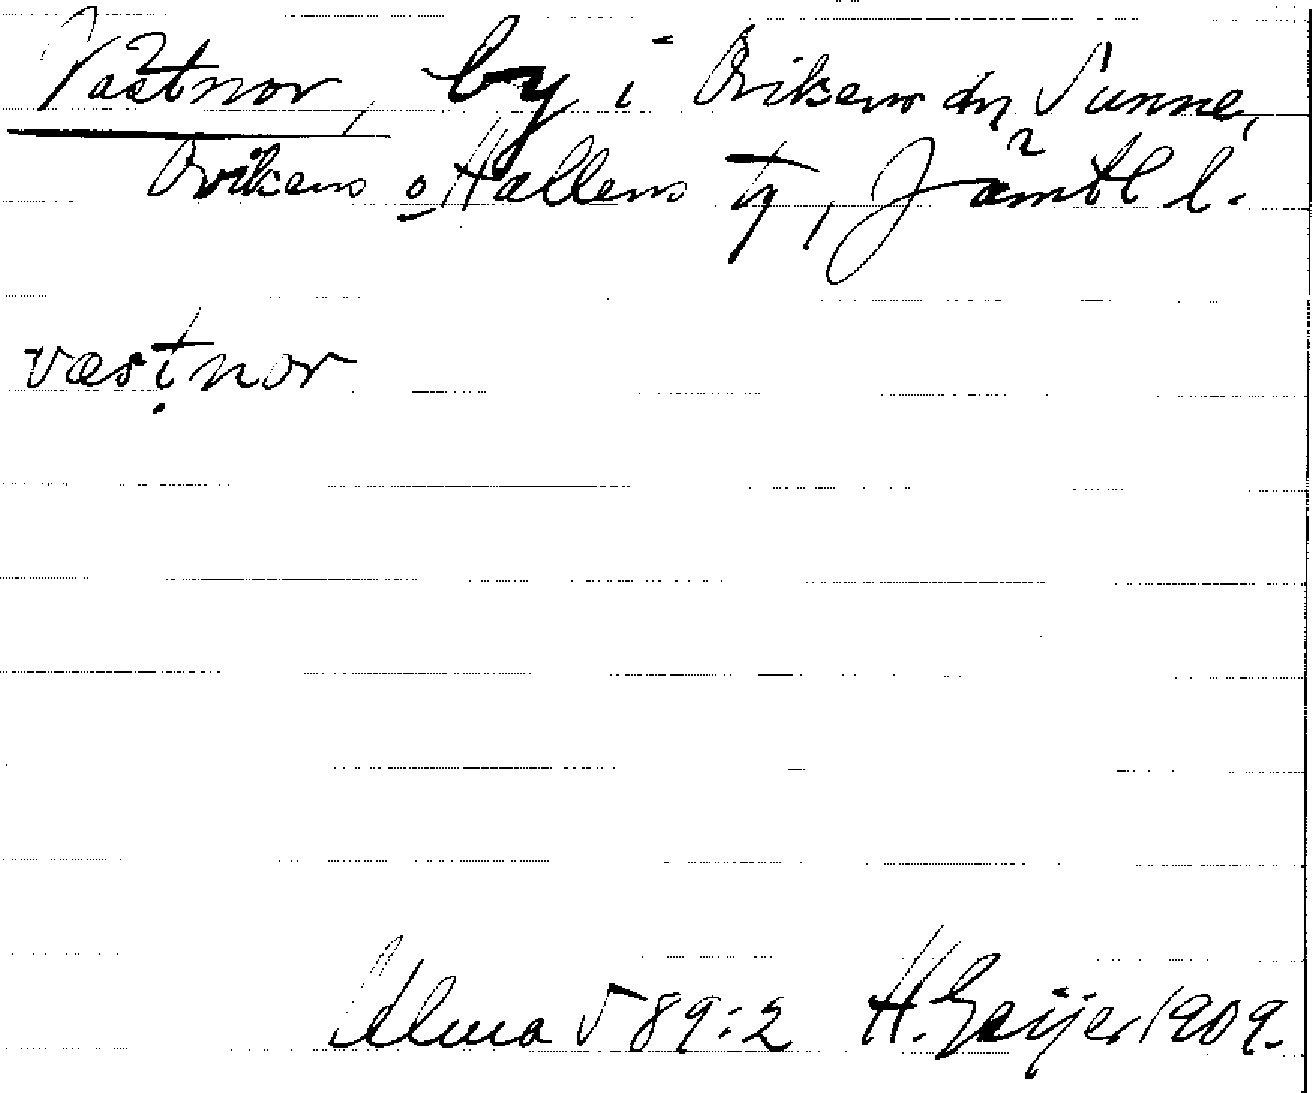 Västnor, by i Ovikens dng Sunne,
Ovikens o Hallens tg, Jämtl l.
væstnor
Ulma 589:2 H. Geijer 1909.